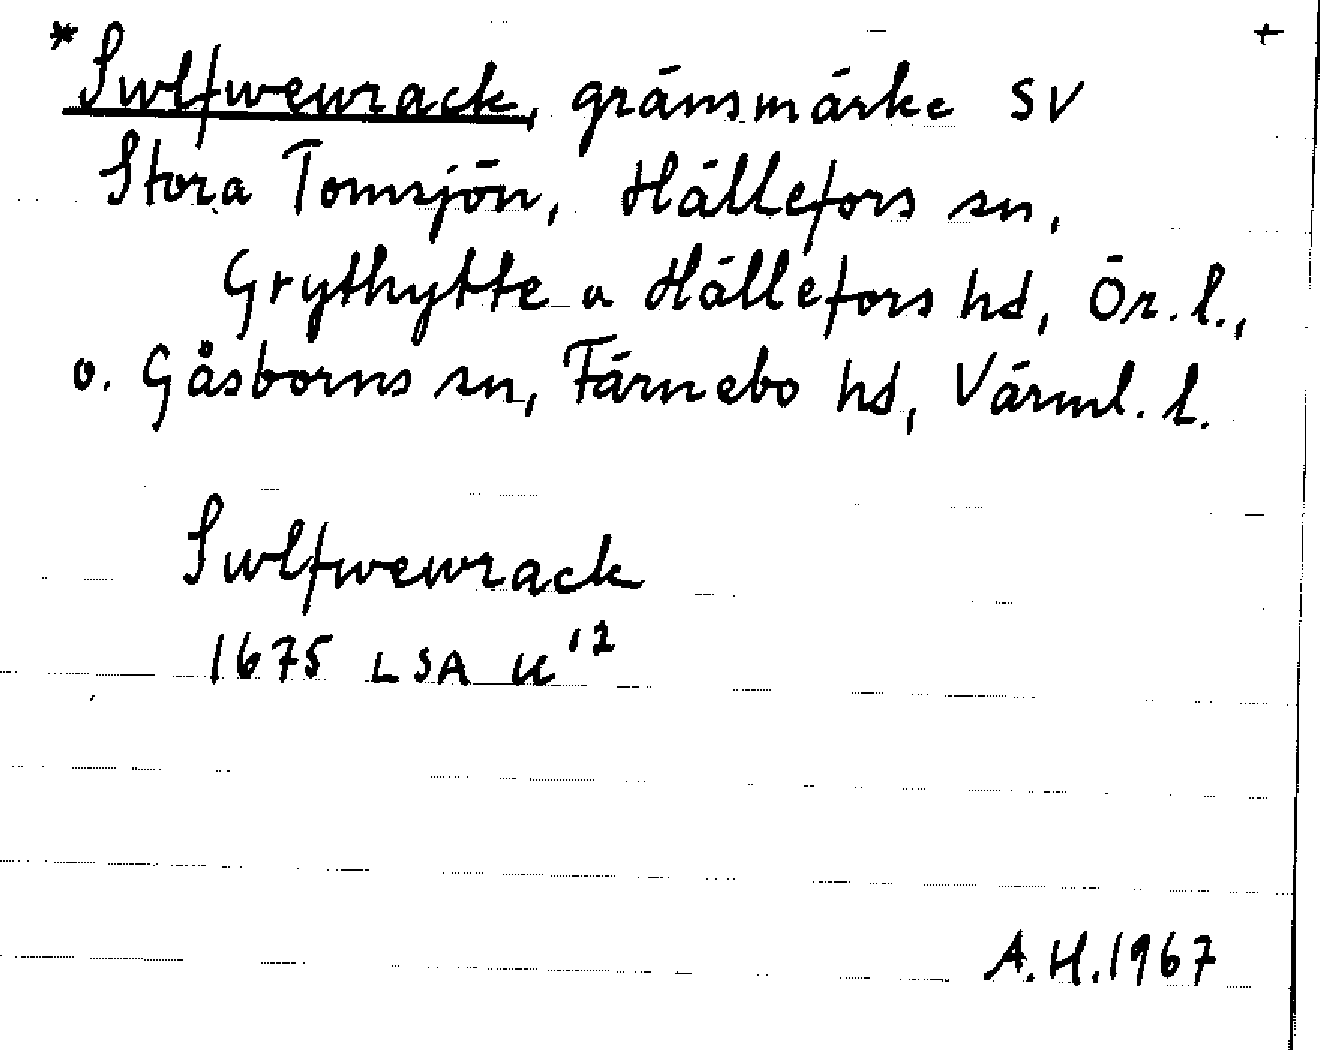 *Swlfwewrack, gränsmärke SV +
Stora Tomsjön, Hällefors sn,
Grythytte o Hällefors hd, Ör. l.,
o. Gåsborns sn, Färnebo hd, Värml. l.
Swlfwewrack
1675 LSA U¹²
A.H. 1967